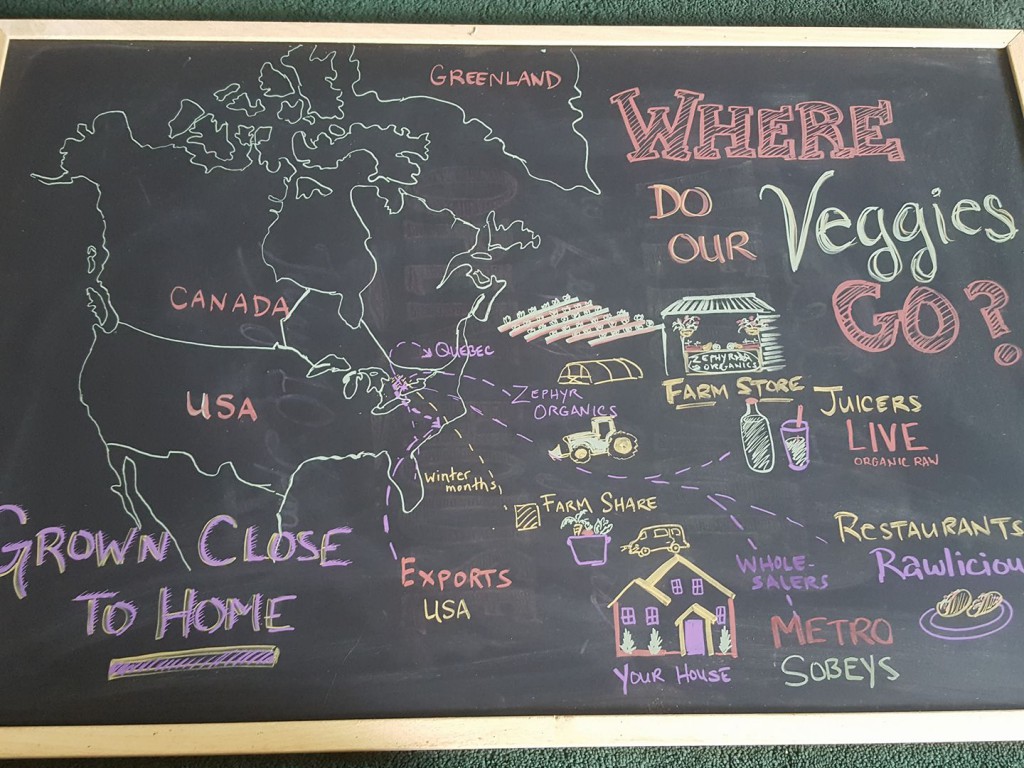 GREENLAND
WHERE
DO
OUR
Veggies
GO?
CANADA
USA
QUEBEC
ZEPHYR
ORGANICS
ZEPHYR
ORGANICS
FARM STORE
JUICERS
LIVE
ORGANIC RAW
winter
months,
FARM SHARE
RESTAURANTS
Rawliciou
WHOLE-
SALERS
METRO
SOBEYS
YOUR HOUSE
EXPORTS
USA
GROWN CLOSE
TO HOME